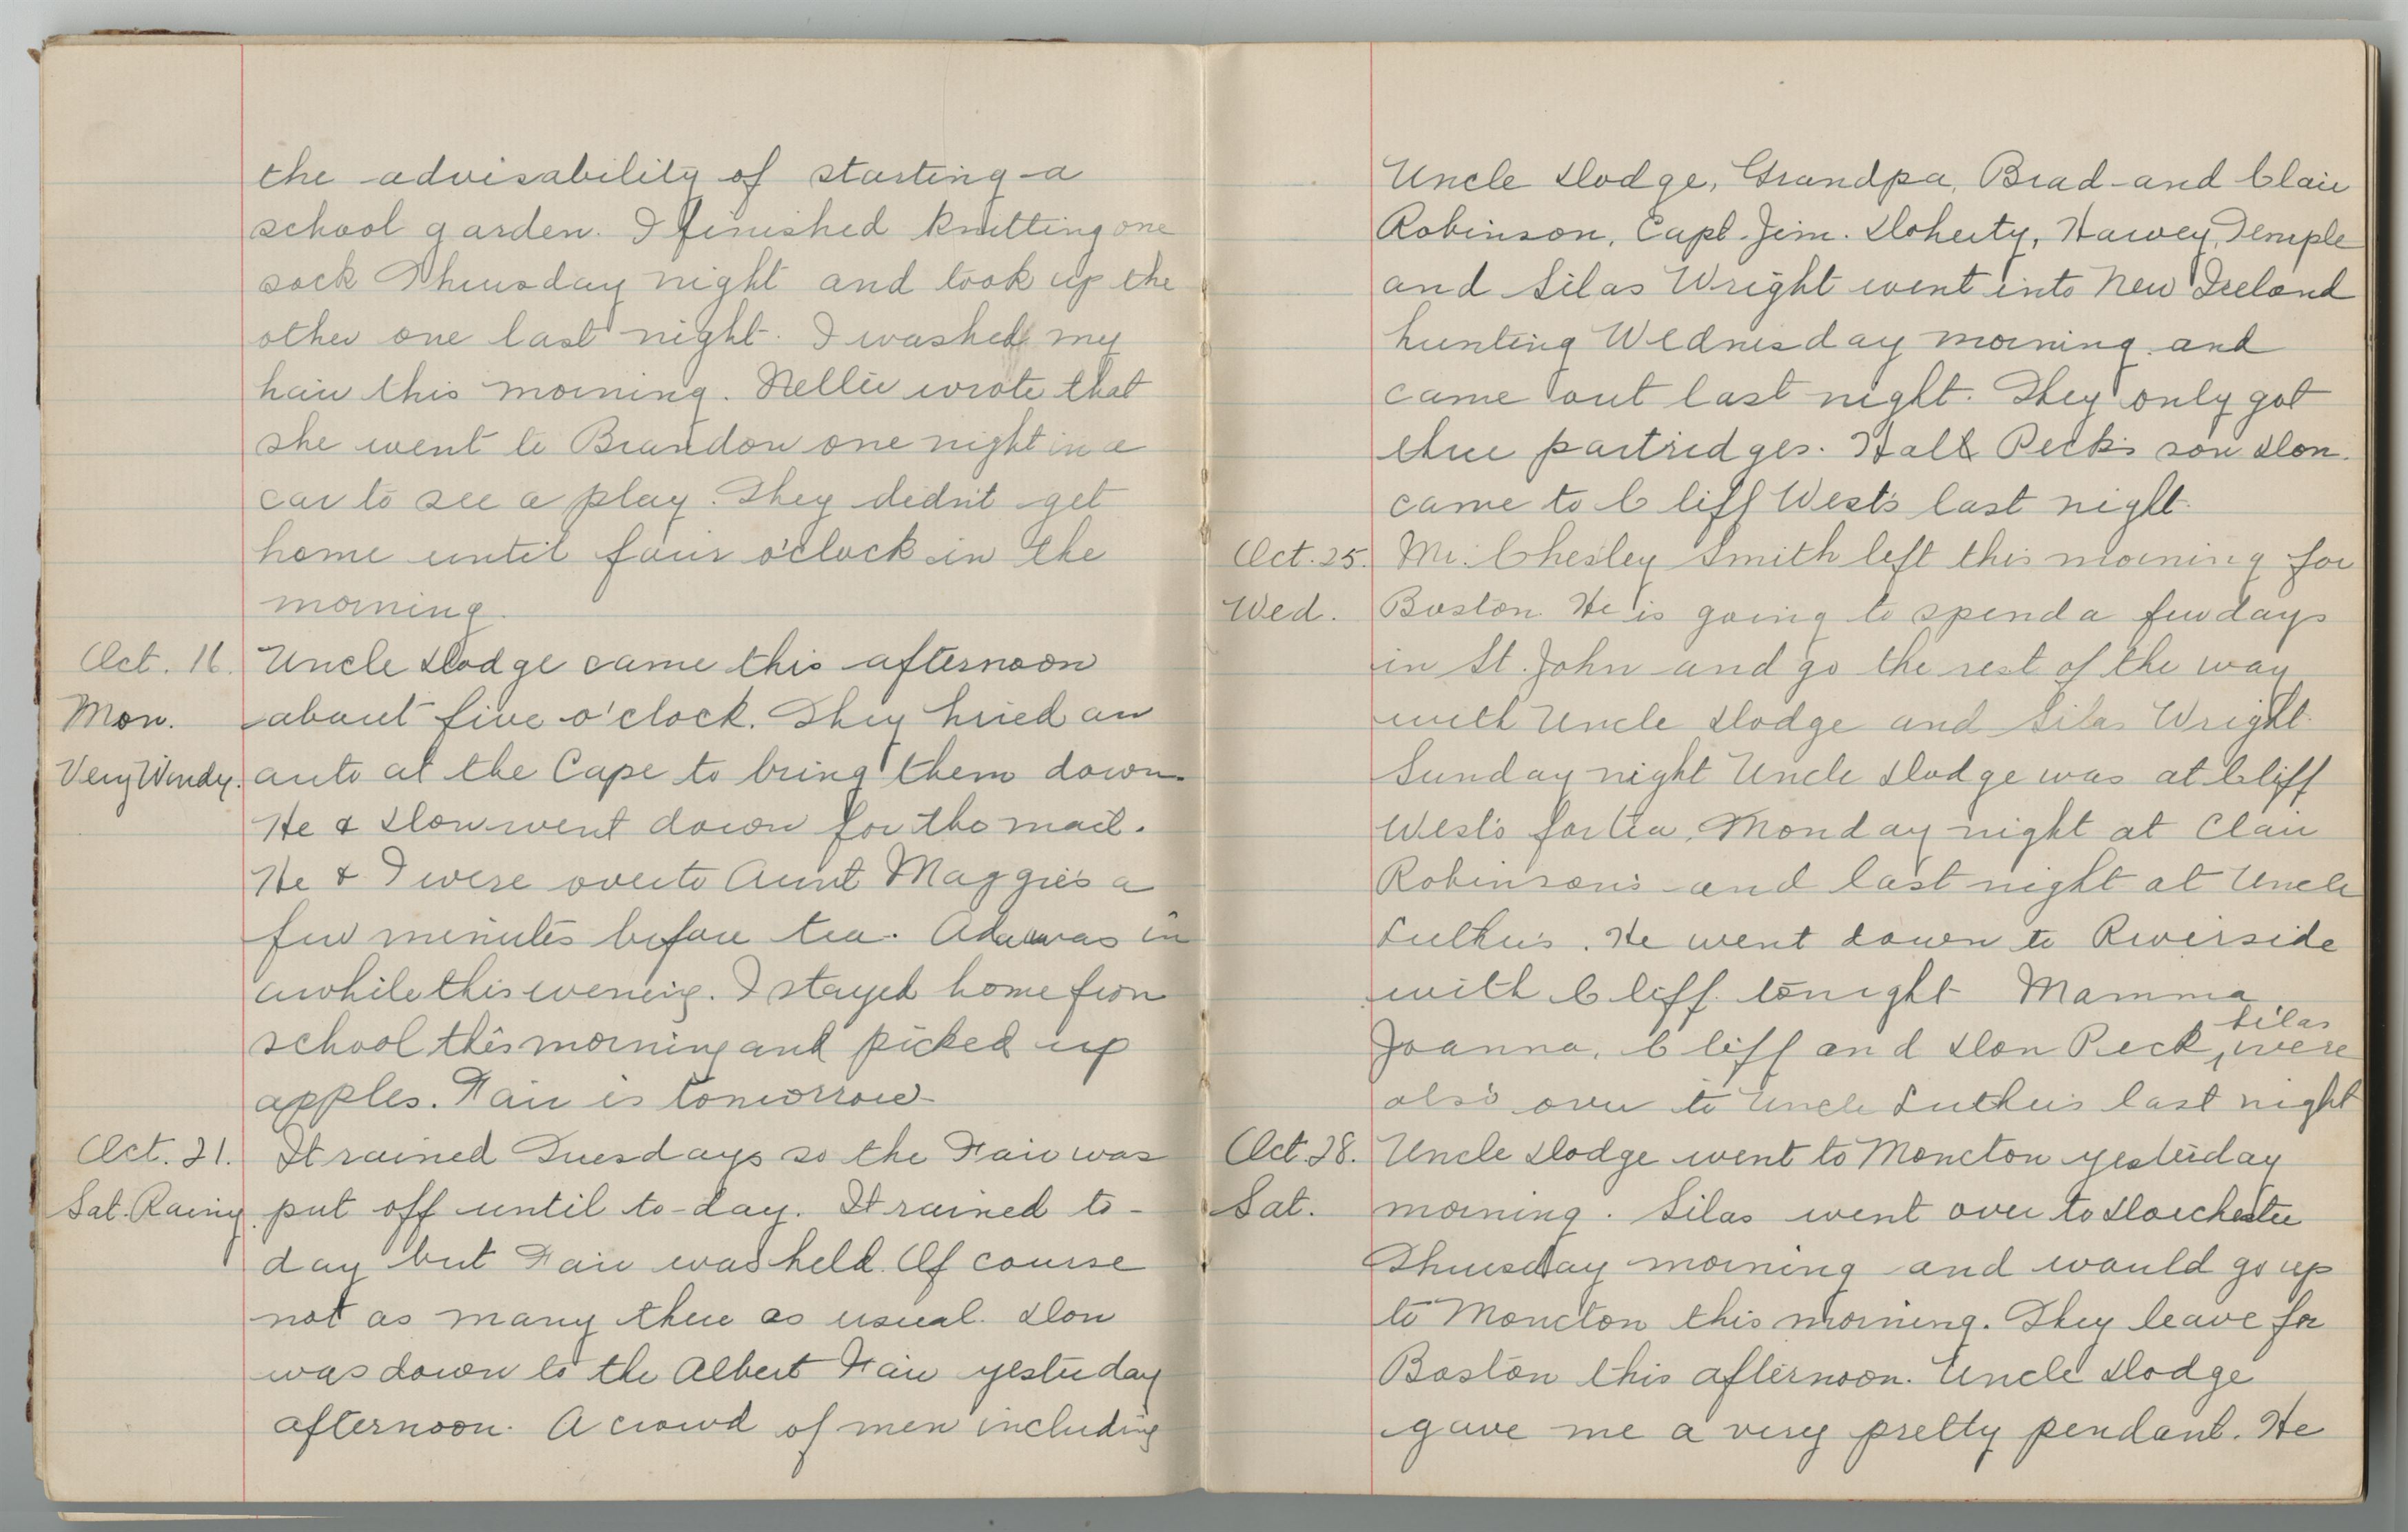 the advisability of starting a
school garden. I finished knitting one
sock Thursday night and took up the
other one last night. I washed my
hair this morning. Nellie wrote that
she went to Brandon one night in a
car to see a play. They didn't get
home until four o'clock in the
morning.
Oct. 16. Uncle Dodge came this afternoon
Mon. about five o'clock. They hired an
Very Windy. auto at the Cape to bring them down.
He & Don went down for the mail.
He & I were over to Aunt Maggie's a
few minutes before tea. Ada was in
awhile this evening. I stayed home from
school this morning and picked up
apples. Fair is tomorrow
Oct. 21. It rained Tuesdays so the Fair was
Sat. Rainy. put off until to-day. It rained to-
day but Fair was held. Of course
not as many there as usual. Don
was down to the Albert Fair yesterday
afternoon. A crowd of men including
Uncle Dodge, Grandpa, Brad and Clair
Robinson, Capt. Jim. Doherty, Harvey, Temple
and Silas Wright went into New Ireland
hunting Wednesday morning and
came out last night. They only got
three partridges. Hall Peck's son Don.
came to Cliff West's last night.
Oct. 25. Mr. Chesley Smith left this morning for
Wed. Boston. He is going to spend a few days
in St. John and go the rest of the way
with Uncle Dodge and Silas Wright.
Sunday night Uncle Dodge was at Cliff
West's for tea, Monday night at Clair
Robinson's and last night at Uncle
Luther's. He went down to Riverside
with Cliff tonight Mamma,
Joanna, Cliff and Don Peck, Silas were
also over to Uncle Luther's last night
Oct. 28. Uncle Dodge went to Moncton yesterday
Sat. morning. Silas went over to Dorchester
Thursday morning and would go up
to Moncton this morning. They leave for
Boston this afternoon. Uncle Dodge
gave me a very pretty pendant. He